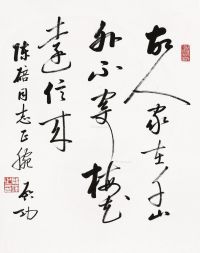 故人家在千山
外不寄梅花
远信来
陈碚同志正腕
启功